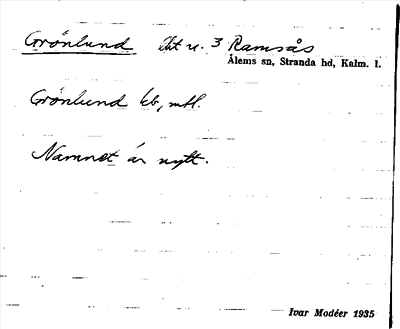 Grönlund lht u. 3 Ramsås
Ålems sn, Stranda hd, Kalm. l.
Grönlund kb, mtl.
Namnet är nytt.
Ivar Modéer 1935